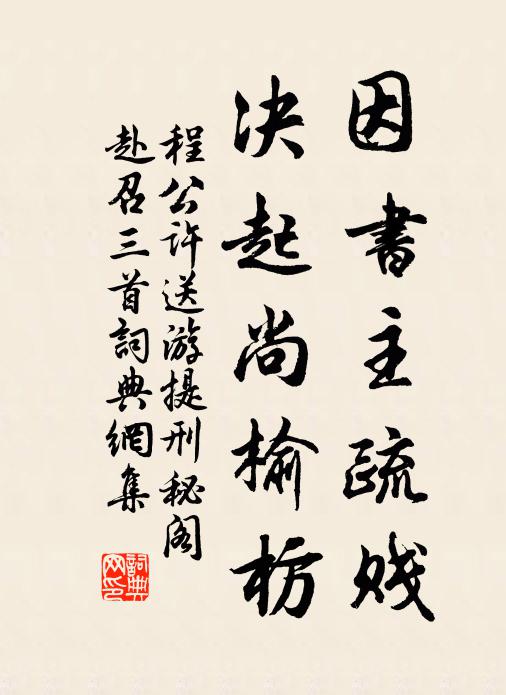 因書主疏賤
决起尚榆枋
程公许送游提刑秘阁
赴召三首詞典網集
詞典網印